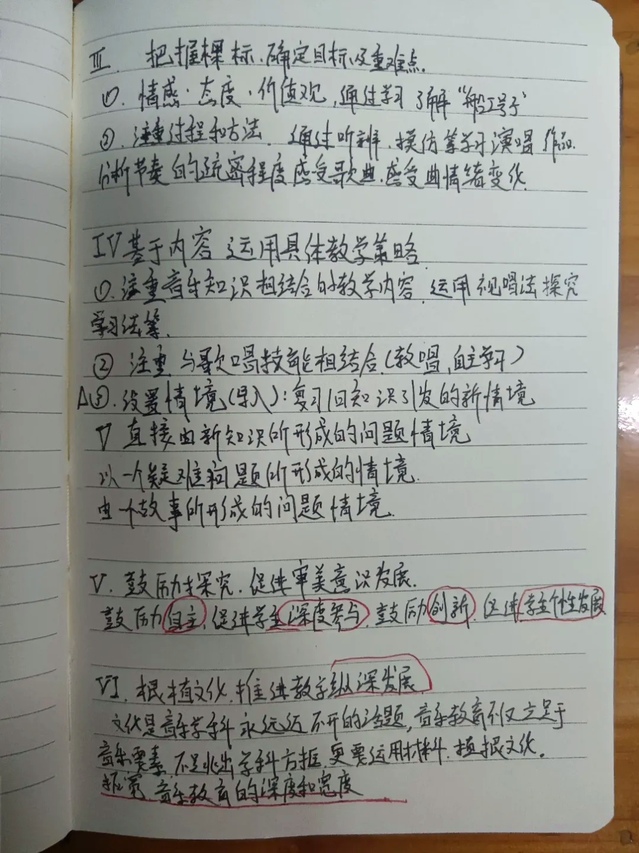 Ⅲ. 把握课标、确定目标及重难点.
①. 情感·态度·价值观, 通过学习了解“船工号子”
②. 注重过程和方法. 通过听辨、模仿等学习演唱作品
分析节奏的疏密程度,感受歌曲.感受曲情绪变化.
Ⅳ 基于内容 运用具体教学策略.
①. 注重音乐知识相结合的教学内容. 运用视唱法探究
学习法等.
② 注重与歌唱技能相结合.(教唱,自主学习)
△③. 设置情境(导入):复习旧知识引发的新情境
▽ 直接由新知识所形成的问题情境
以一个疑难问题所形成的情境.
由一个故事所形成的问题情境.
Ⅴ. 鼓励探究. 促进审美意识发展.
鼓励自主,促进学生深度参与,鼓励创新,促进学生个性发展
Ⅵ. 根植文化.推进教学纵深发展.
文化是音乐学科永远迈不开的话题, 音乐教育不仅立足于
音乐要素、不足 出学科方框,更要运用材料.植根文化.
拓宽 音乐教育的深度和宽度